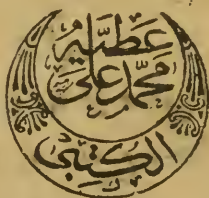 عطيه
محمد على
الكتبى